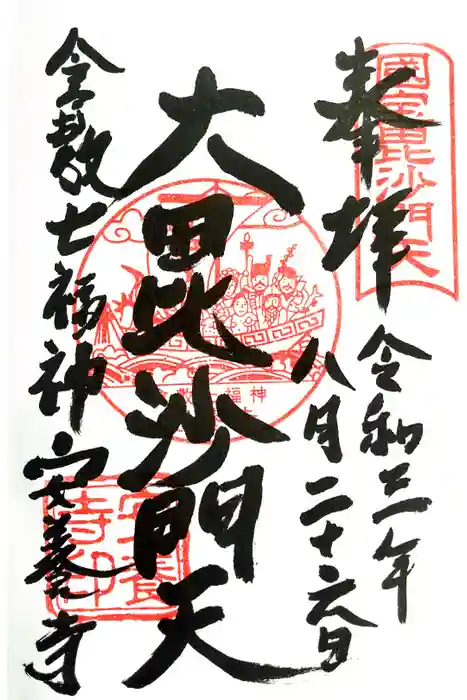 國宝毘沙門天
奉拝
令和三年
八月二十六日
大毘沙門天
福神
倉敷七福神 安養寺
安養寺印